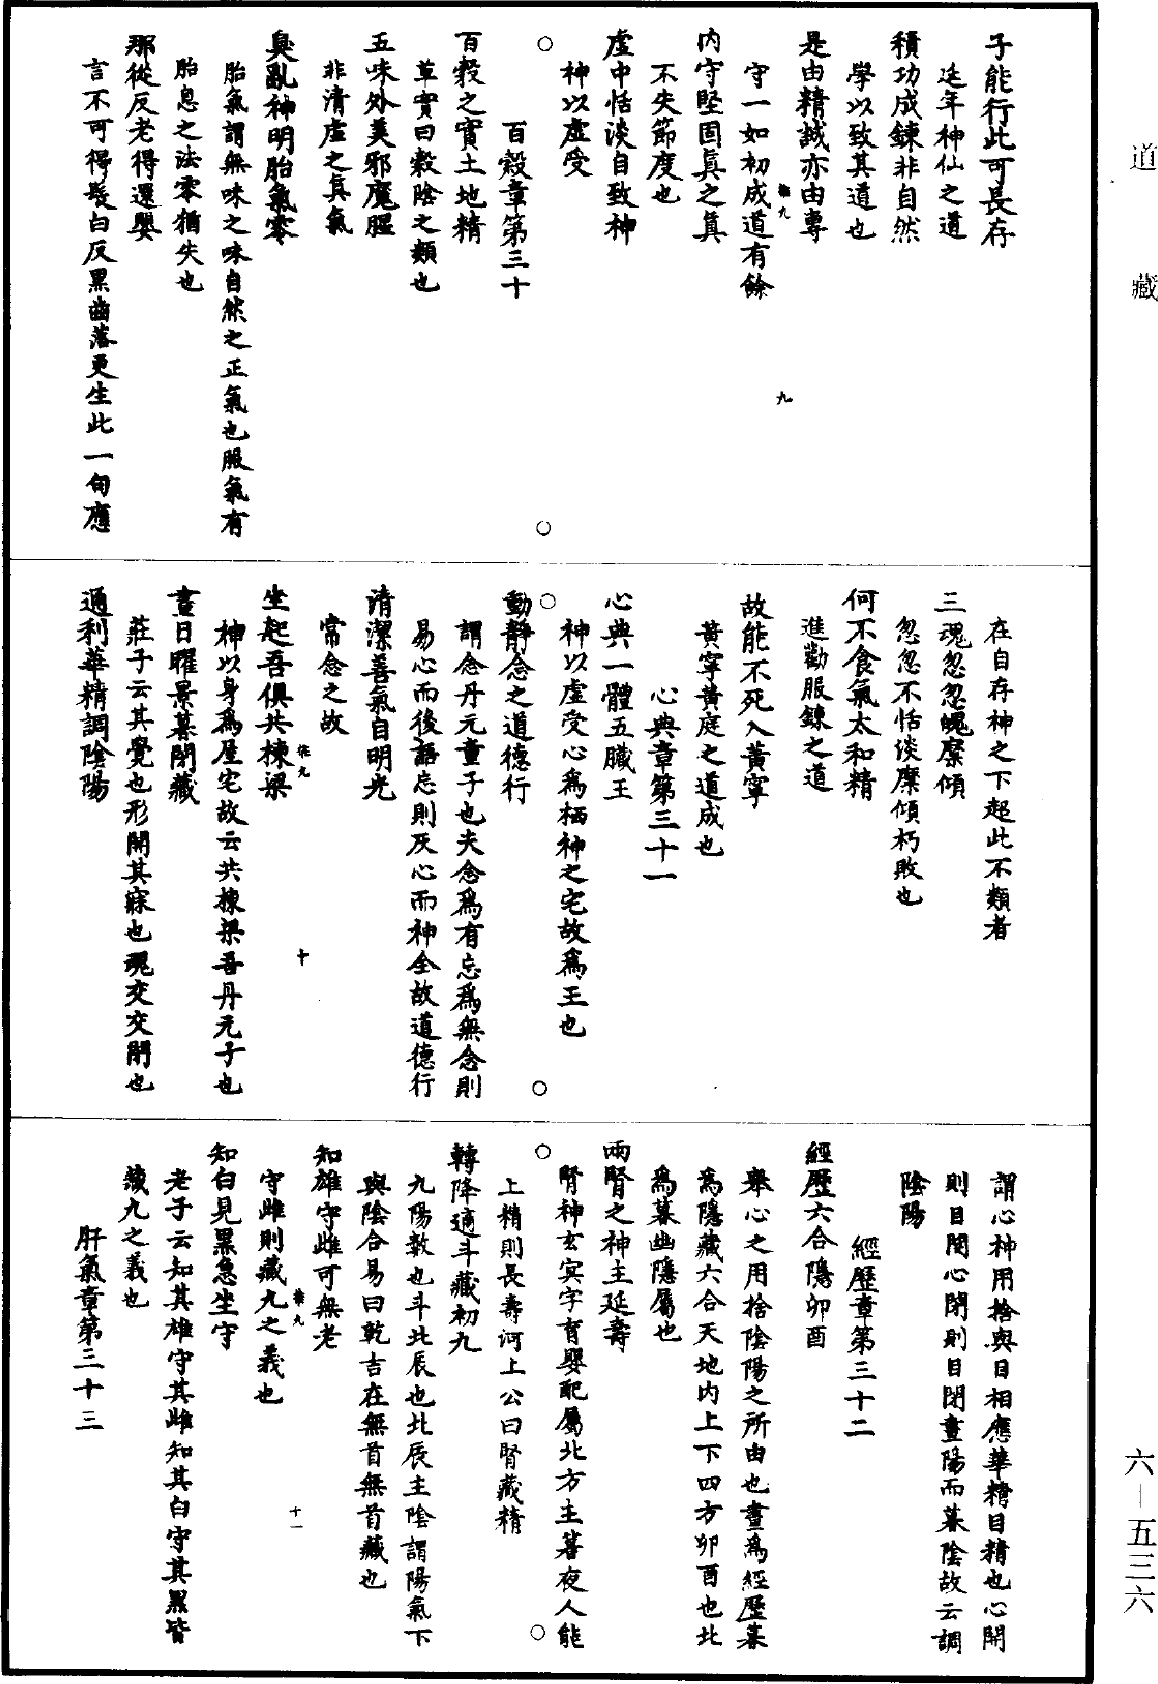 道藏
子能行此可長存
延年神仙之道
積功成鍊非自然
學以致其道也
是由精誠亦由專
守一如初成道有餘
內守堅固真之真
不失節度也
虛中恬淡自致神
神以虛受
百穀章第三十
百穀之實土地精
草實曰穀陰之類也
五味外美邪魔腥
非清虛之真氣
臭亂神明胎氣零
胎氣謂無味之味自然之正氣也服氣有
胎息之法零猶失也
那從反老得還嬰
言不可得髮白反黑齒落更生此一句應
在自存神之下起此不類者
三魂忽忽魄糜傾
忽忽不恬淡糜傾朽敗也
何不食氣太和精
進勸服鍊之道
故能不死入黃寧
黃寧黃庭之道成也
心典章第三十一
心典一體五臟王
神以虛受心為栖神之宅故為王也
動靜念之道德行
謂念丹元童子也夫念為有忘為無念則
易心而後語忘則灰心而神全故道德行
清潔善氣自明光
常念之故
坐起吾俱共棟梁
神以身為屋宅故云共棟梁吾丹元子也
晝日曜景暮閉藏
莊子云其覺也形開其寐也魂交交閉也
通利華精調陰陽
謂心神用捨與目相應華精目精也心開
則目開心閉則目閉晝陽而暮陰故云調
陰陽
經歷章第三十二
經歷六合隱卯酉
舉心之用捨陰陽之所由也晝為經歷暮
為隱藏六合天地內上下四方卯酉也北
為暮幽隱屬也
兩腎之神主延壽
腎神玄冥字育嬰配屬北方主暮夜人能
上精則長壽河上公曰腎藏精
轉降適斗藏初九
九陽數也斗北辰也北辰主陰謂陽氣下
與陰合易曰乾吉在無首無首藏也
知雄守雌可無老
守雌則藏九之義也
知白見黑急坐守
老子云知其雄守其雌知其白守其黑皆
藏九之義也
肝氣章第三十三
九
十
十一
六—五三六